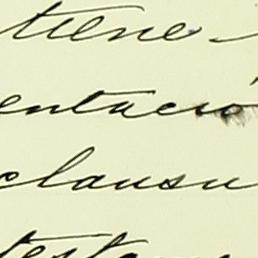 tiene
entació
clausu
testam